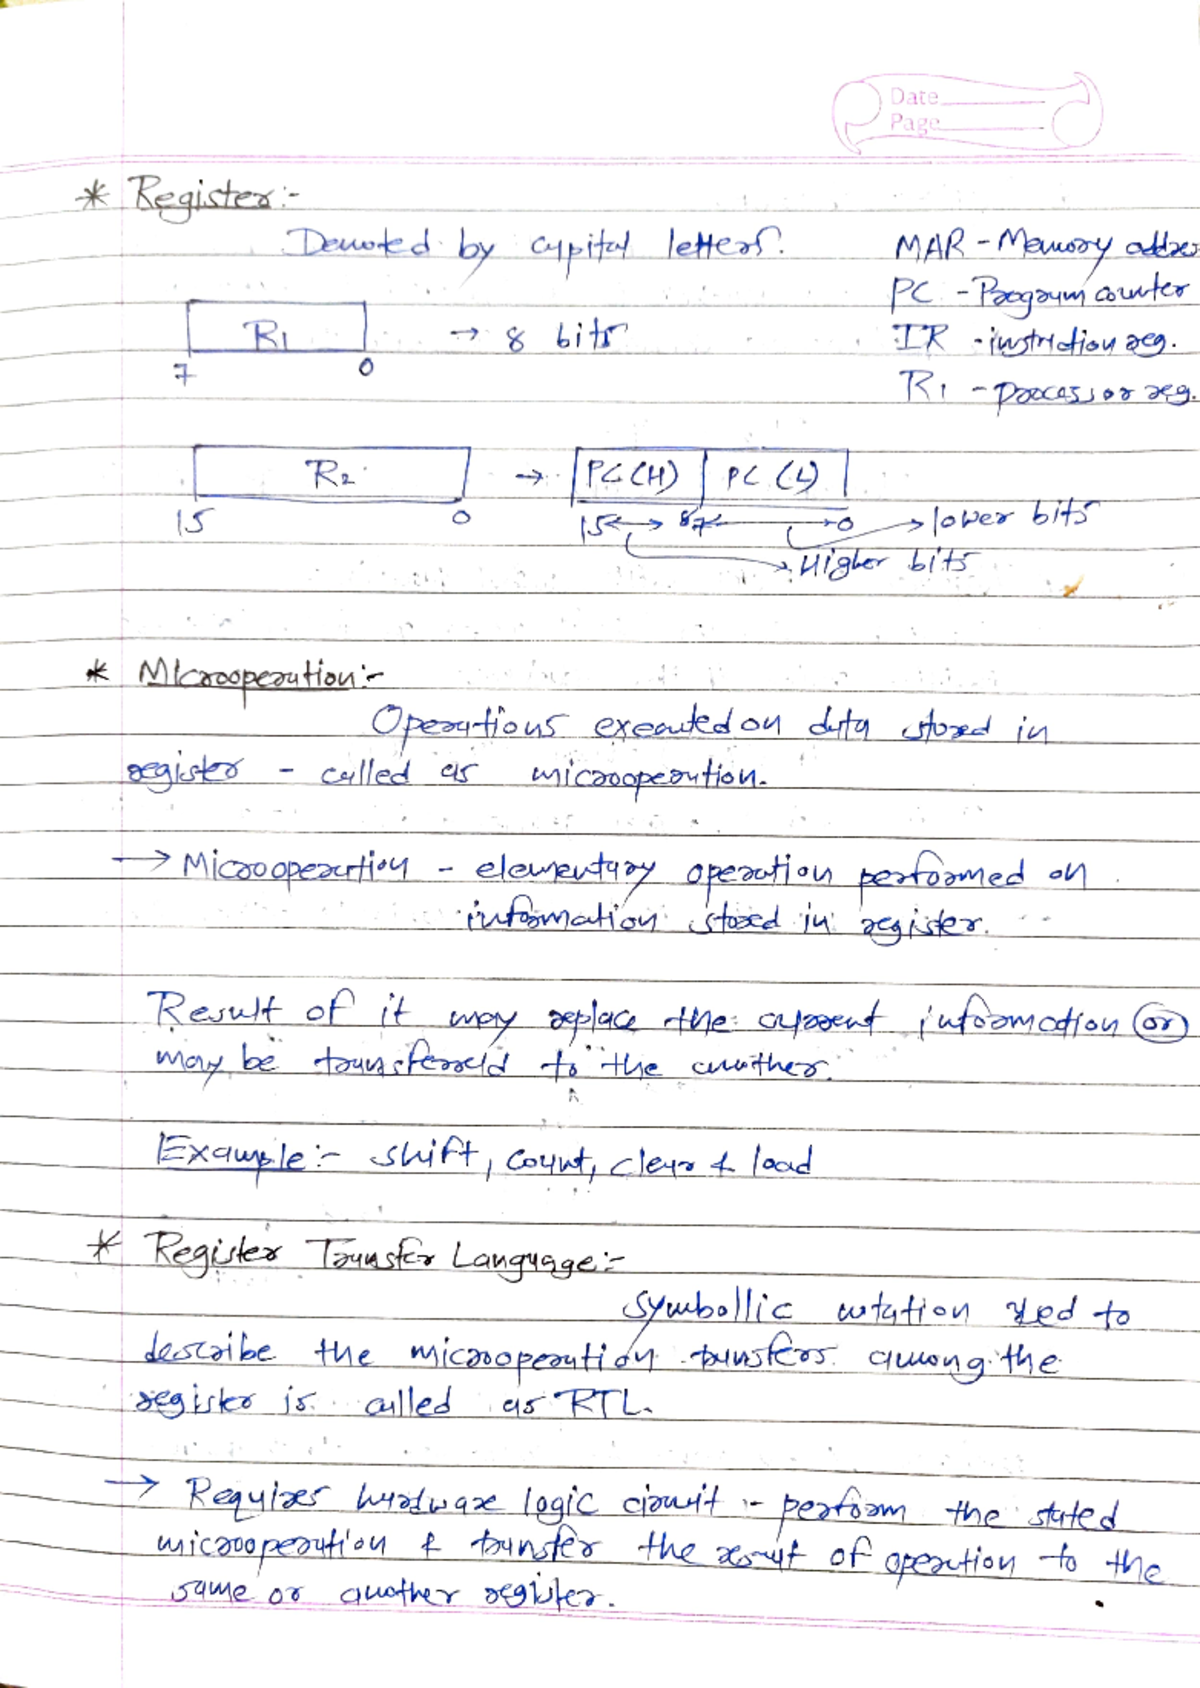 Date
Page
* Register :-
Denoted by capital letters.
MAR - Memory addres
PC - Program counter
R1 → 8 bits
IR - instriction reg.
7 0
R1 - processor reg.
R2 → PC (H) PC (L)
15 0 15 8 7 0 → lower bits
→ Higher bits
* MIcrooperation :-
Operations executed on data stored in
register - called as microoperation.
→ Microoperation - elementary operation performed on
information stored in register.
Result of it may replace the current information (or)
may be transferreld to the another.
Example :- shift, count, clear & load
* Register Transfer Language :-
Symbollic notation used to
describe the microoperation transfers among the
register is called as RTL.
→ Requires hardware logic circuit :- perform the stated
microoperation & transfer the result of operation to the
same or another register.